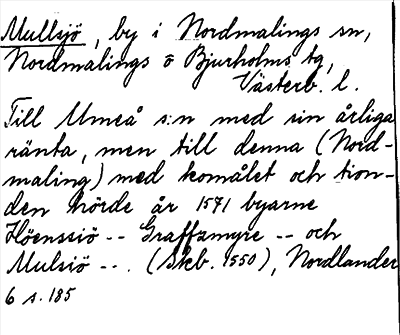 Mullsjö, by i Nordmalings sn,
Nordmalings o Bjurholms tg,
Västerb. l.
Till Umeå s:n med sin årliga
ränta, men till denna (Nord-
maling) med komålet och tion-
den hörde år 1571 byarne
Höenssiö -- Graffzmyre -- och
Mulsiö -- . (Skb. 1550), Nordlander
6 s. 185